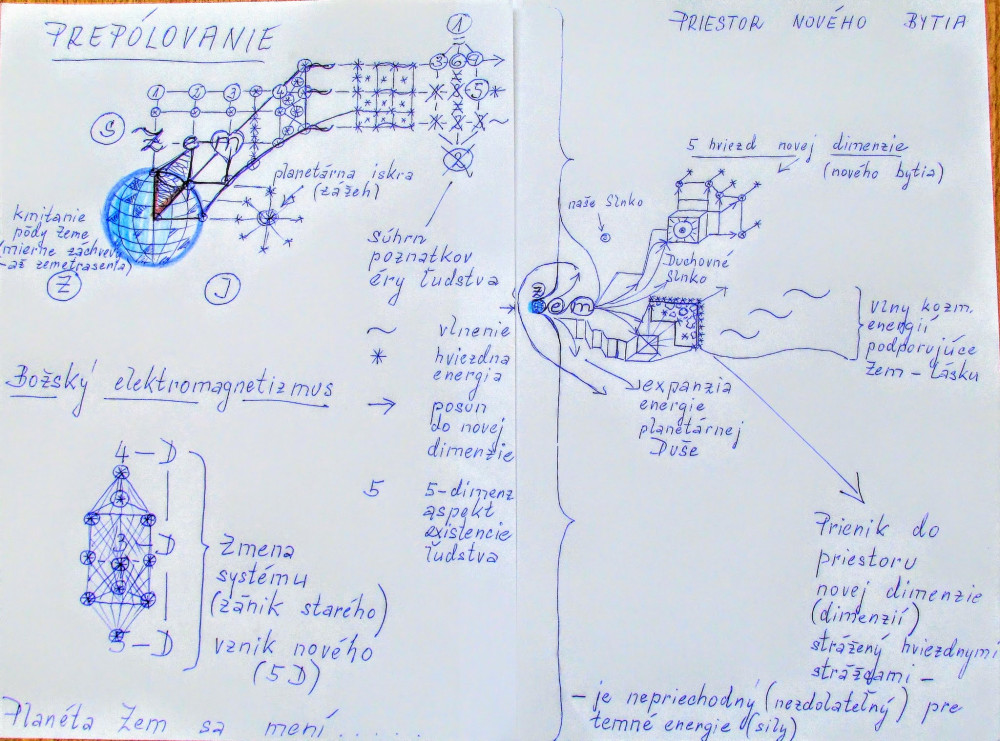 PREPÓLOVANIE
1
3 6 9
1 2 3 4
5
8
8
2 3
2
S
Z
m
planetárna iskra
(zážeh)
kmitanie
pôdy Zeme
(mierne záchvevy
-až zemetrasenia)
Z
J
súhrn
poznatkov
éry ľudstva
~ vlnenie
* hviezdna
energia
→ posun
do novej
dimenzie
5 5-dimenz.
aspekt
existencie
ľudstva
Božský elektromagnetizmus
4-D
3-D
5-D
Zmena
systému
(zánik starého)
vznik nového
(5D)
Planéta Zem sa mení......
PRIESTOR NOVÉHO BYTIA
5 hviezd novej dimenzie
(nového bytia)
naše Slnko
Duchovné
Slnko
Z e m
vlny kozm.
energií
podporujúce
Zem-lásku
expanzia
energie
planetárnej
Duše
Prienik do
priestoru
novej dimenzie
(dimenzií)
strážený hviezdnymi
strážcami -
- je nepriechodný (nezdolateľný) pre
temné energie (sily)